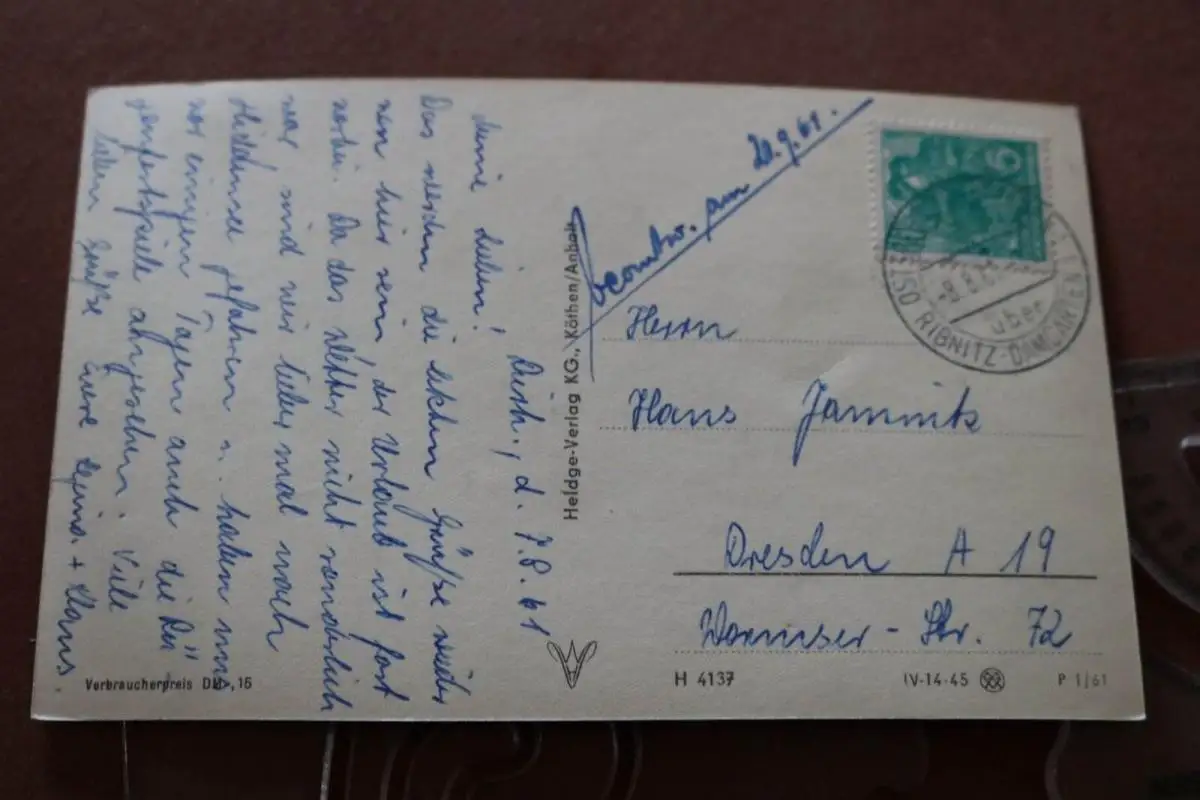 Dierh., d. 7.8.61
Meine Lieben!
Das werden die letzten Grüße wieder
von hier sein, der Urlaub ist fast
vorbei. Da das Wetter nicht sonderlich
war, sind wir lieber mal nach
Hiddensee gefahren u. haben uns
vor einigen Tagen auch die Rü-
genfestspiele angesehen. Viele
liebe Grüße Eure + Hans.
Verbraucherpreis DM -,15
Heldge-Verlag KG., Köthen/Anhalt
beantw. am 20.9.61.
6
OSTSEEBAD
-9.8.61
über
RIBNITZ-DAMGARTEN 1
Herrn
Hans Jannink
Dresden A 19
Wormser-Str. 72
H 4137
IV-14-45
P 1/61